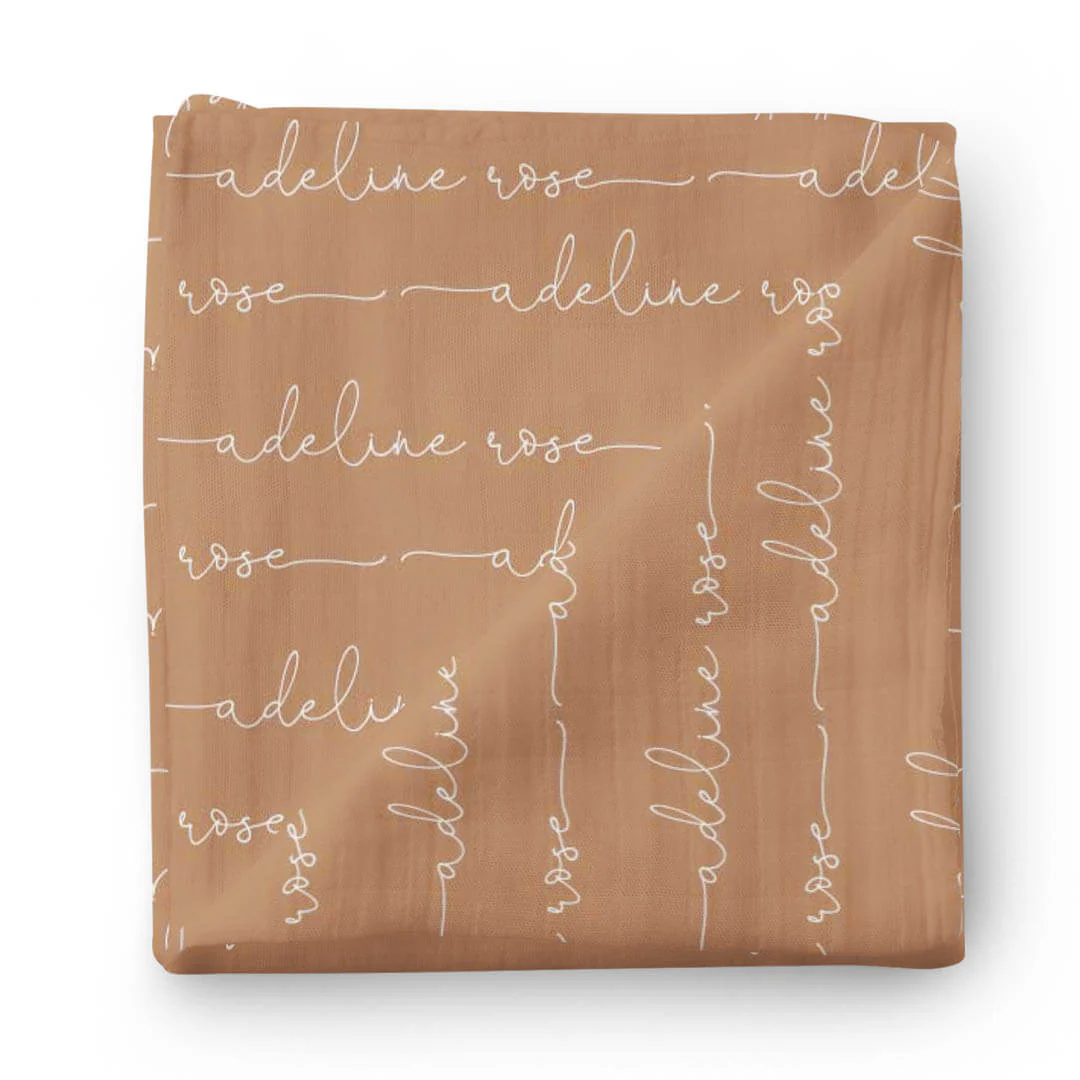 adeline rose adel
rose adeline ros
adeline rose
rose ad
adeli
rose
rose
adeline
rose ad
adeline rose
rose adeline ros